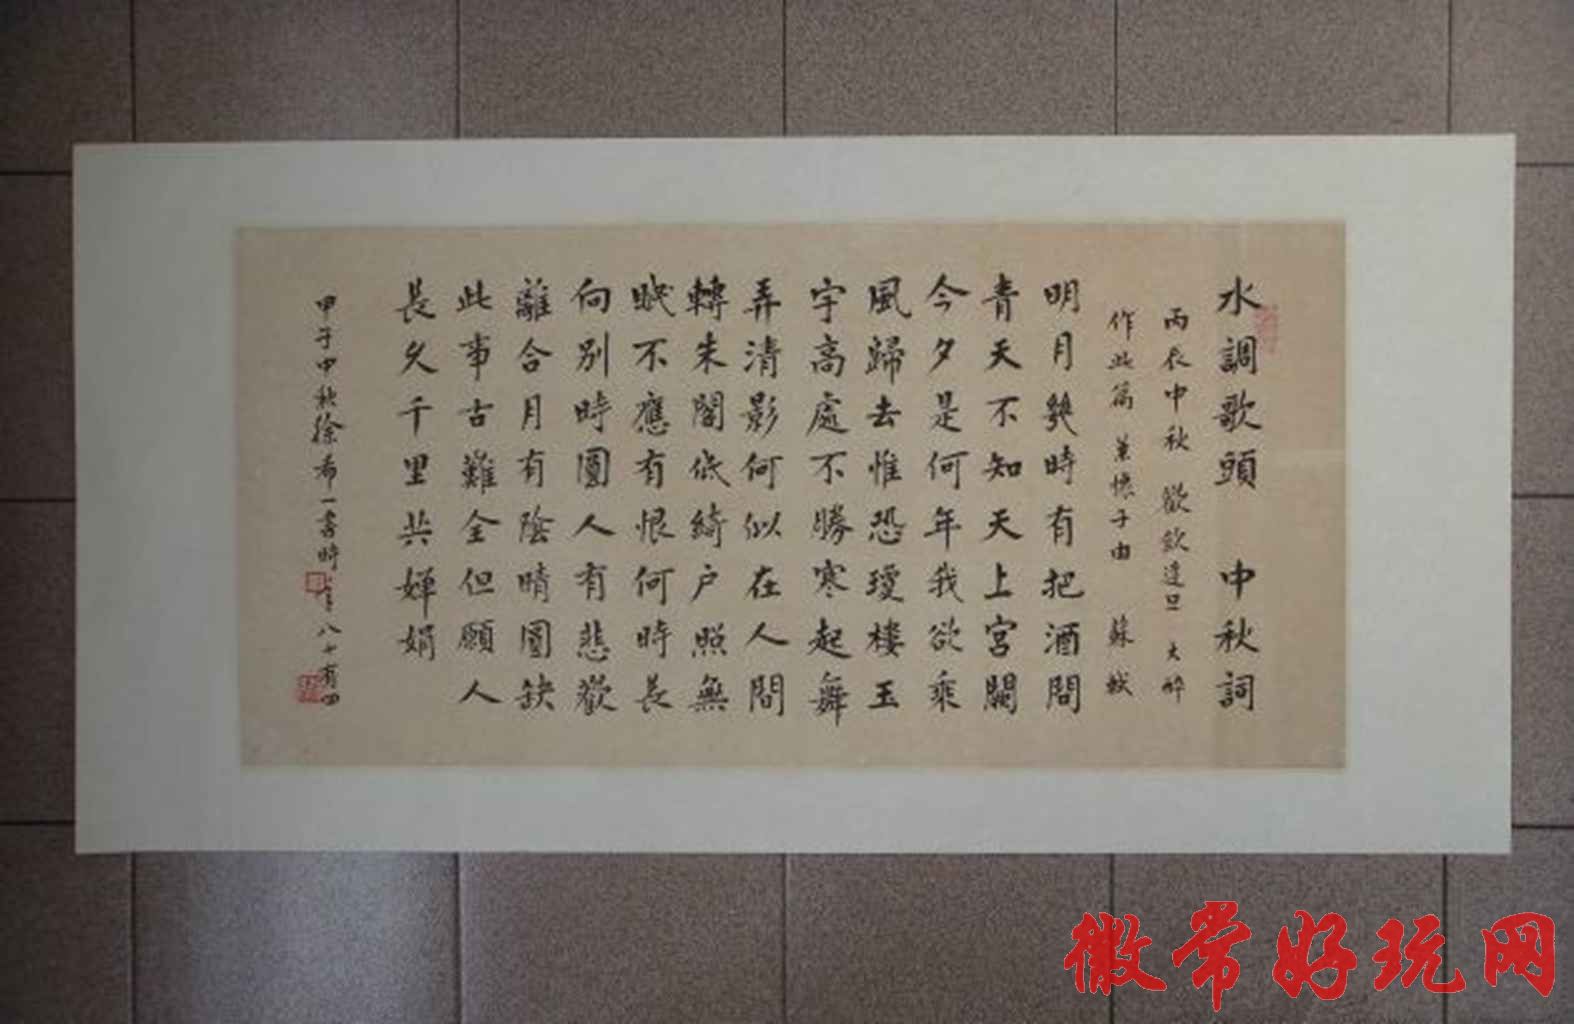 水調歌頭 中秋詞
丙辰中秋 歡飲達旦 大醉
作此篇 兼懷子由 蘇軾
明月幾時有把酒問
青天不知天上宮闕
今夕是何年我欲乘
風歸去惟恐瓊樓玉
宇高處不勝寒起舞
弄清影何似在人間
轉朱閣低綺戶照無
眠不應有恨何時長
向別時圓人有悲歡
離合月有陰晴圓缺
此事古難全但願人
長久千里共嬋娟
甲子中秋徐希一書時年八十有四
徽常好玩网